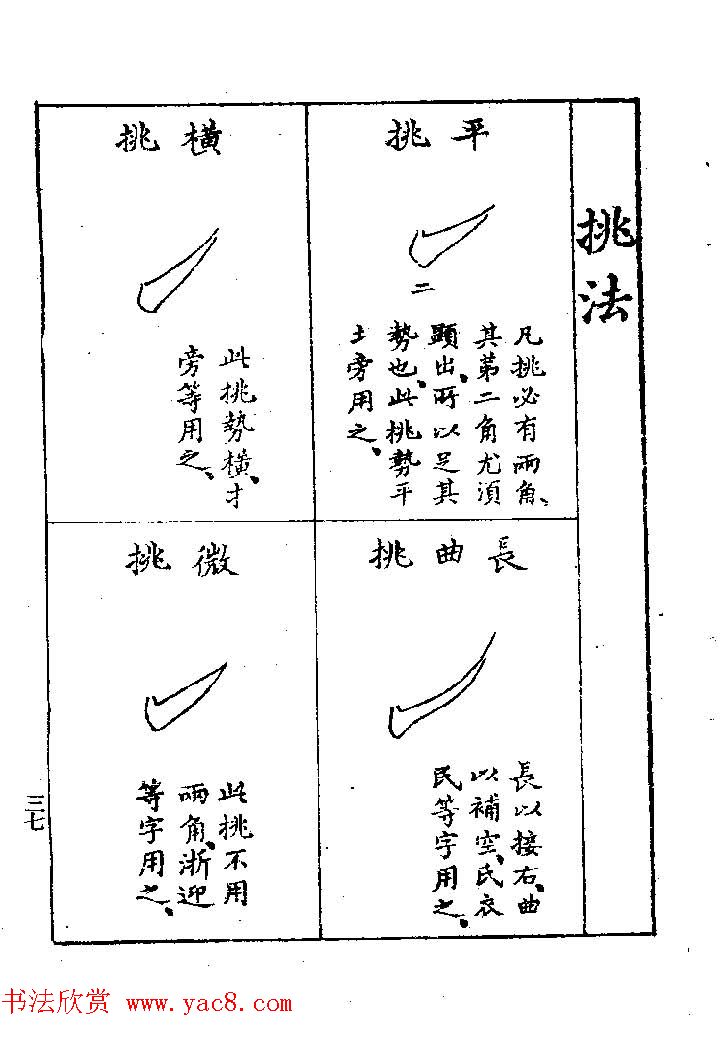 挑法
平挑
二
凡挑必有兩角、
其第二角尤須
顯出、所以足其
勢也、此挑勢平
土旁用之、
橫挑
此挑勢橫、才
旁等用之、
長曲挑
長以接右、曲
以補空、氏衣
民等字用之、
微挑
此挑不用
兩角、浙迎
等字用之、
三七
书法欣赏 www.yac8.com